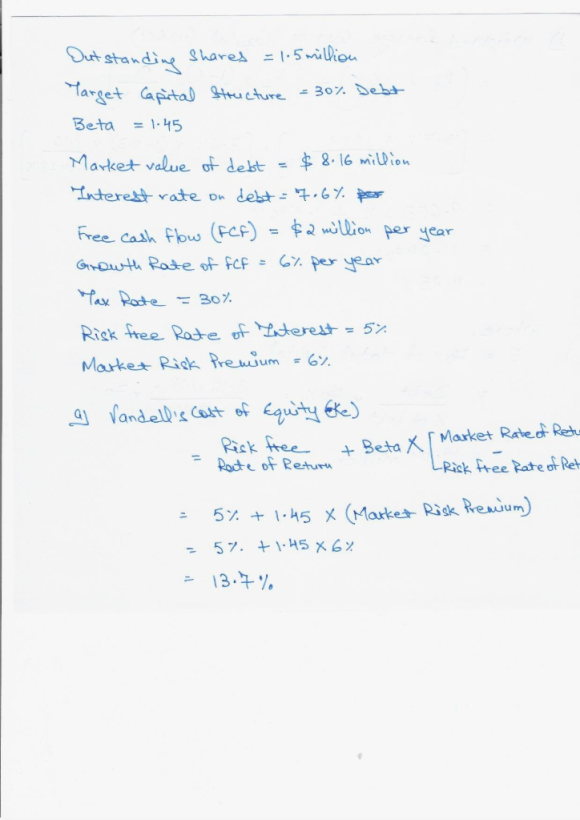 Outstanding Shares = 1.5 million
Target Capital Structure = 30% Debt
Beta = 1.45
Market value of debt = $ 8.16 million
Interest rate on debt = 7.6%
Free cash flow (FCF) = $2 million per year
Growth Rate of FCF = 6% per year
Tax Rate = 30%
Risk free Rate of Interest = 5%
Market Risk Premium = 6%
a) Vandell's Cost of Equity (Ke)
= Risk free Rate of Return + Beta X [Market Rate of Retu
- Risk free Rate of Ret
= 5% + 1.45 X (Market Risk Premium)
= 5% + 1.45 X 6%
= 13.7%